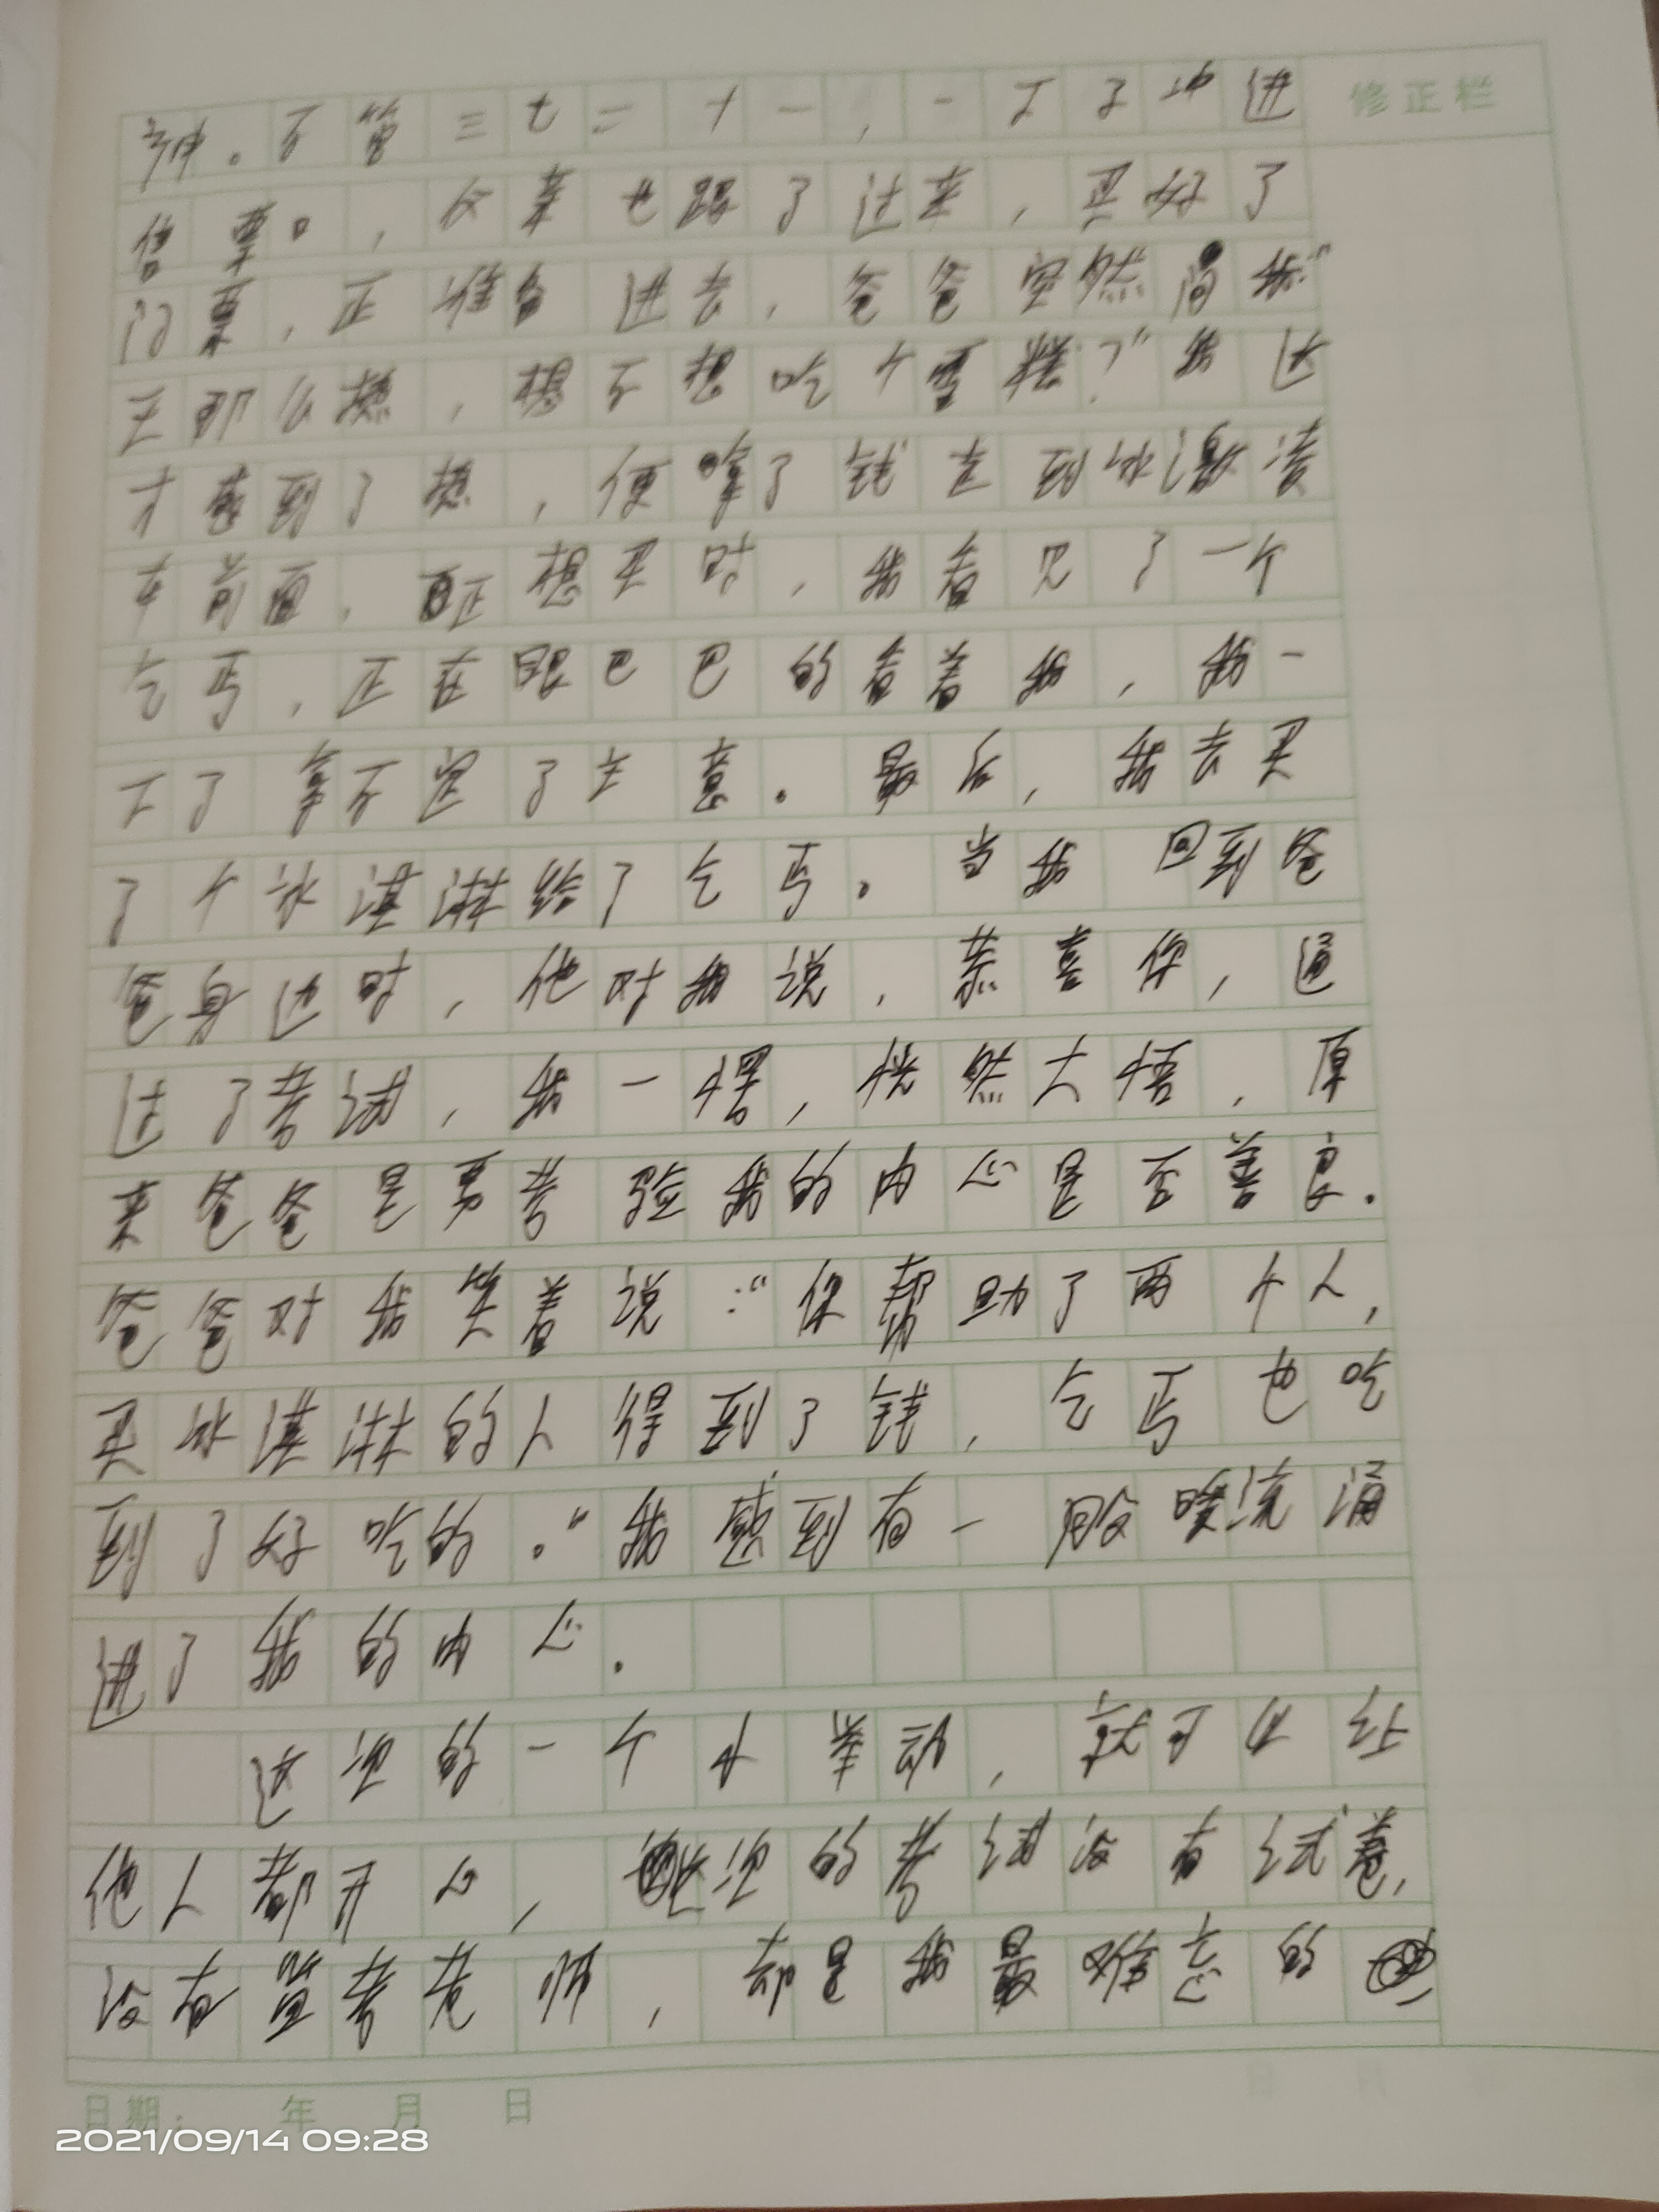 修正栏
神。不管三七二十一，一下子冲进
售票口，父亲也跟了过来，买好了
门票，正准备进去，爸爸突然问我：“
天那么热，想不想吃个雪糕？”我这
才感到了热，便拿了钱走到冰淇淋
车前面，正想买时，我看见了一个
乞丐，正在眼巴巴的看着我，我一
下了拿不定了主意。最后，我去买
了个冰淇淋给了乞丐。当我回到爸
爸身边时，他对我说，恭喜你，通
过了考试，我一愣，恍然大悟，原
来爸爸是要考验我的内心是否善良．
爸爸对我笑着说：“你帮助了两个人，
买冰淇淋的人得到了钱，乞丐也吃
到了好吃的。”我感到有一股暖流涌
进了我的内心．
这次的一个小举动，就可以让
他人都开心，这次的考试没有试卷，
没有监考老师，却是我最难忘的
日期： 年 月 日
2021/09/14 09:28